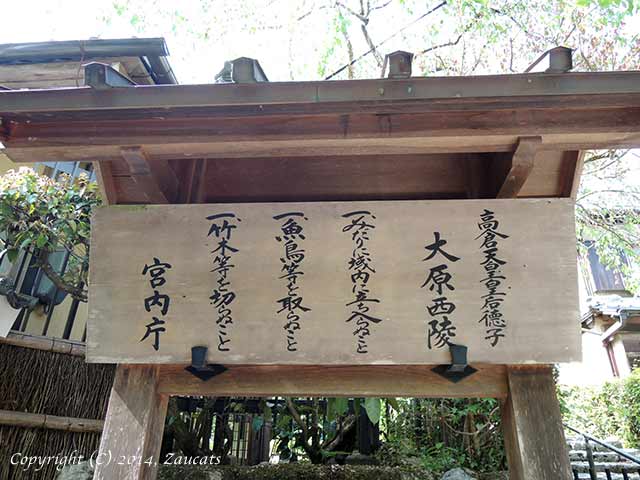 高倉天皇皇后德子
大原西陵
一、みだりに域内に立入らぬこと
一、魚鳥等を取らぬこと
一、竹木等を切らぬこと
宮内庁
Copyright (C) 2014, Zaucats